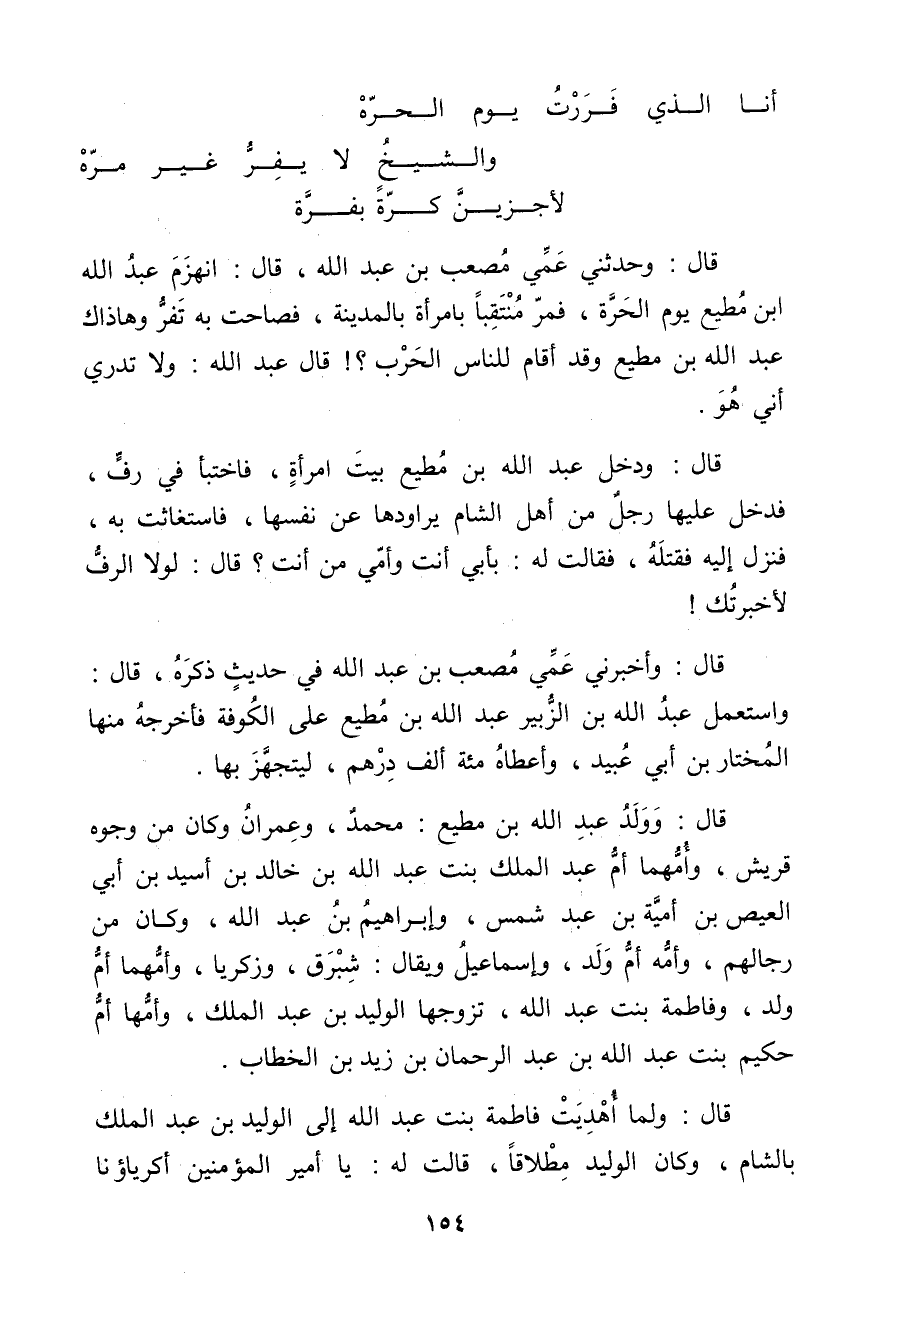 أنا الذي فَرَرْتُ يوم الحرّهْ
والشيخُ لا يفرُّ غير مرّهْ
لأجزينَّ كرّةً بفرَّة
قال : وحدثني عَمِّي مُصعب بن عبد الله ، قال : انهزَمَ عبدُ الله
ابن مُطيع يوم الحَرَّة ، فمرّ مُنْتَقِباً بامرأة بالمدينة ، فصاحت به تَفرُّ وهاذاك
عبد الله بن مطيع وقد أقام للناس الحَرْب ؟! قال عبد الله : ولا تدري
أني هُوَ .
قال : ودخل عبد الله بن مُطيع بيتَ امرأةٍ ، فاختبأ في رفٍّ ،
فدخل عليها رجلٌ من أهل الشام يراودها عن نفسها ، فاستغاثت به ،
فنزل إليه فقتلَهُ ، فقالت له : بأبي أنت وأمّي من أنت ؟ قال : لولا الرفُّ
لأخبرتُك !
قال : وأخبرني عَمِّي مُصعب بن عبد الله في حديثٍ ذكرَهُ ، قال :
واستعمل عبدُ الله بن الزُّبير عبد الله بن مُطيع على الكُوفة فأخرجهُ منها
المُختار بن أبي عُبيد ، وأعطاهُ مئة ألف دِرْهم ، ليتجهَّزَ بها .
قال : وَوَلَدُ عبدِ الله بن مطيع : محمدٌ ، وعِمرانُ وكان من وجوه
قريش ، وأُمُّهما أمُّ عبد الملك بنت عبد الله بن خالد بن أسيد بن أبي
العيص بن أميَّة بن عبد شمس ، وإبراهيمُ بنُ عبد الله ، وكان من
رجالهم ، وأمُّه أمُّ وَلَد ، وإسماعيلُ ويقال : شِبْرَق ، وزكريا ، وأمُّهما أمُّ
ولد ، وفاطمة بنت عبد الله ، تزوجها الوليد بن عبد الملك ، وأمُّها أمُّ
حكيم بنت عبد الله بن عبد الرحمان بن زيد بن الخطاب .
قال : ولما أُهْدِيَتْ فاطمة بنت عبد الله إلى الوليد بن عبد الملك
بالشام ، وكان الوليد مِطْلاقاً ، قالت له : يا أمير المؤمنين أكرياؤنا
١٥٤